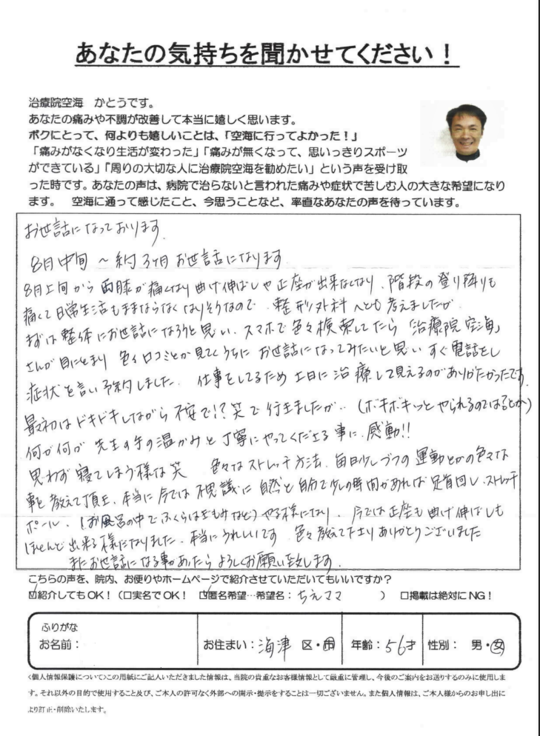 あなたの気持ちを聞かせてください！
治療院空海　かとうです。
あなたの痛みや不調が改善して本当に嬉しく思います。
ボクにとって、何よりも嬉しいことは、「空海に行ってよかった！」
「痛みがなくなり生活が変わった」「痛みが無くなって、思いっきりスポーツ
ができている」「周りの大切な人に治療院空海を勧めたい」という声を受け取
った時です。あなたの声は、病院で治らないと言われた痛みや症状で苦しむ人の大きな希望になり
ます。　空海に通って感じたこと、今思うことなど、率直なあなたの声を待っています。
お世話になっております。
8月中旬 〜約3ヶ月 お世話になります
8月上旬から 両膝が痛くなり曲げ伸ばしや正座が出来なくなり、階段の登り降りも
痛くて日常生活もままならなくなりそうなので、整形外科へとも考えましたが
まずは整体にお世話になろうと思い、スマホで色々検索してたら「治療院空海」
さんが目に止まり 色々口コミとか見てくうちに お世話になってみたいと思い すぐ電話をし
症状を言い予約しました。 仕事をしてるため土日に治療して見えるのがありがたかったです
最初はドキドキしながら 不安で!?笑で行きましたが‥（ボキボキッとやられるのではるとか）
何が何が 先生の手の温かみと丁寧にやってくださる事に、感動!!
思わず寝てしまう様な笑　色々なストレッチ方法、毎日少しづつの運動とかの色々な
事を教えて頂き、本当に今では不思議に自然と自分で少しの時間があれば足首回し、ストレッチ
ポール、（お風呂の中でふくらはぎもみなど）やる様になり、今では正座も曲げ伸ばしも
ほとんど出来る様になりました。本当にうれしいです。色々教えて下さりありがとうございました
またお世話になる事があったらよろしくお願い致します。
こちらの声を、院内、お便りやホームページで紹介させていただいてもいいですか？
☑紹介してもOK！（□実名でOK！　☑匿名希望…希望名：ちえママ　）　□掲載は絶対にNG！
ふりがな
お名前：　お住まい：海津 区・市　年齢：56才　性別：　男・女
〈個人情報保護について〉この用紙にご記入いただきました情報は、当院の貴重なお客様情報として厳重に管理し、今後のご案内をお送りするのみに使用しま
す。それ以外の目的で使用すること及び、ご本人の許可なく外部への開示・提示をすることは一切ございません。また個人情報は、ご本人様からのお申し出に
より訂正・削除いたします。